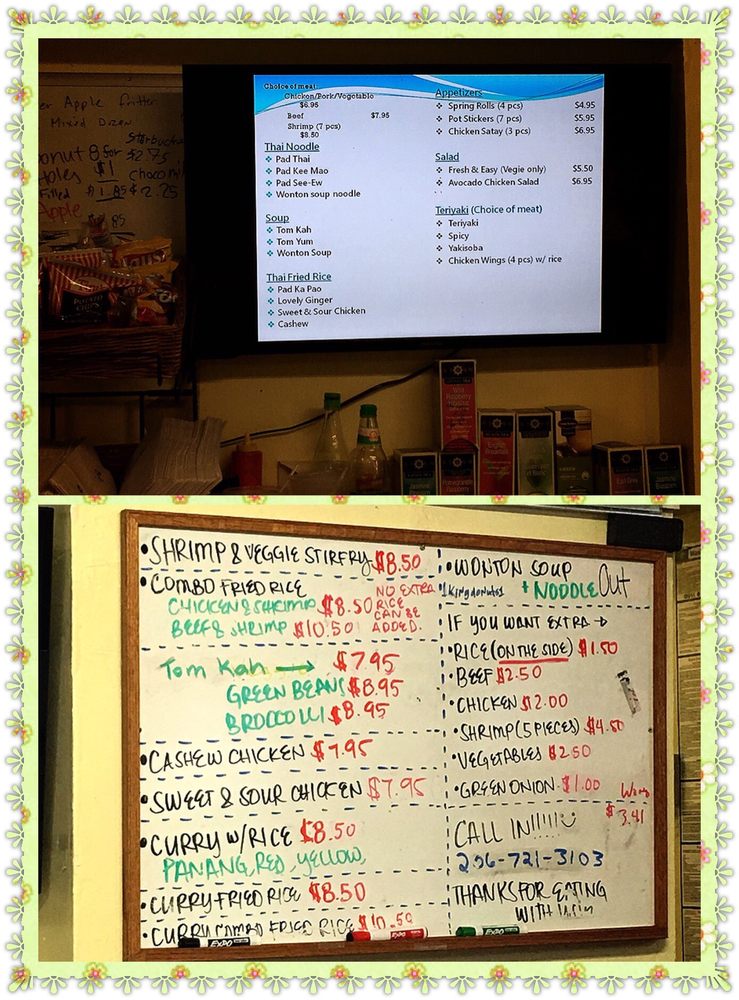 Apple Fritter
Mixed Dozen
onut 8 for $2.75
Holes $1
Filled $1.85
$2.25
Apple
85
Choice of meat:
Chicken/Pork/Vegetable
$6.95
Beef $7.95
Shrimp (7 pcs)
$8.50
Thai Noodle
Pad Thai
Pad Kee Mao
Pad See-Ew
Wonton soup noodle
Soup
Tom Kah
Tom Yum
Wonton Soup
Thai Fried Rice
Pad Ka Pao
Lovely Ginger
Sweet & Sour Chicken
Cashew
Appetizers
Spring Rolls (4 pcs) $4.95
Pot Stickers (7 pcs) $5.95
Chicken Satay (3 pcs) $6.95
Salad
Fresh & Easy (Vegie only) $5.50
Avocado Chicken Salad $6.95
Teriyaki (Choice of meat)
Teriyaki
Spicy
Yakisoba
Chicken Wings (4 pcs) w/ rice
•SHRIMP & VEGGIE STIRFRY $8.50
•COMBO FRIED RICE
CHICKEN & SHRIMP $8.50
BEEF & SHRIMP $10.50
NO EXTRA
RICE
CAN BE
ADDED.
Tom Kah → $7.95
GREEN BEANS $8.95
BROCCOLLI $8.95
•CASHEW CHICKEN $7.95
•SWEET & SOUR CHICKEN $7.95
•CURRY W/RICE $8.50
PANANG, RED, YELLOW,
•CURRY FRIED RICE $8.50
•CURRY COMBO FRIED RICE $10.50
•WONTON SOUP
+ NODDLE Out
1kingdonuts1
IF YOU WANT EXTRA →
•RICE (ON THE SIDE) $1.50
•BEEF $2.50
•CHICKEN $2.00
•SHRIMP (5 PIECES) $4.50
•VEGETABLES $2.50
•GREEN ONION $1.00
Wing
$3.41
CALL IN!!!!!
206-721-3103
THANKS FOR EATING
WITH
EXPO
EXPO
EXPO